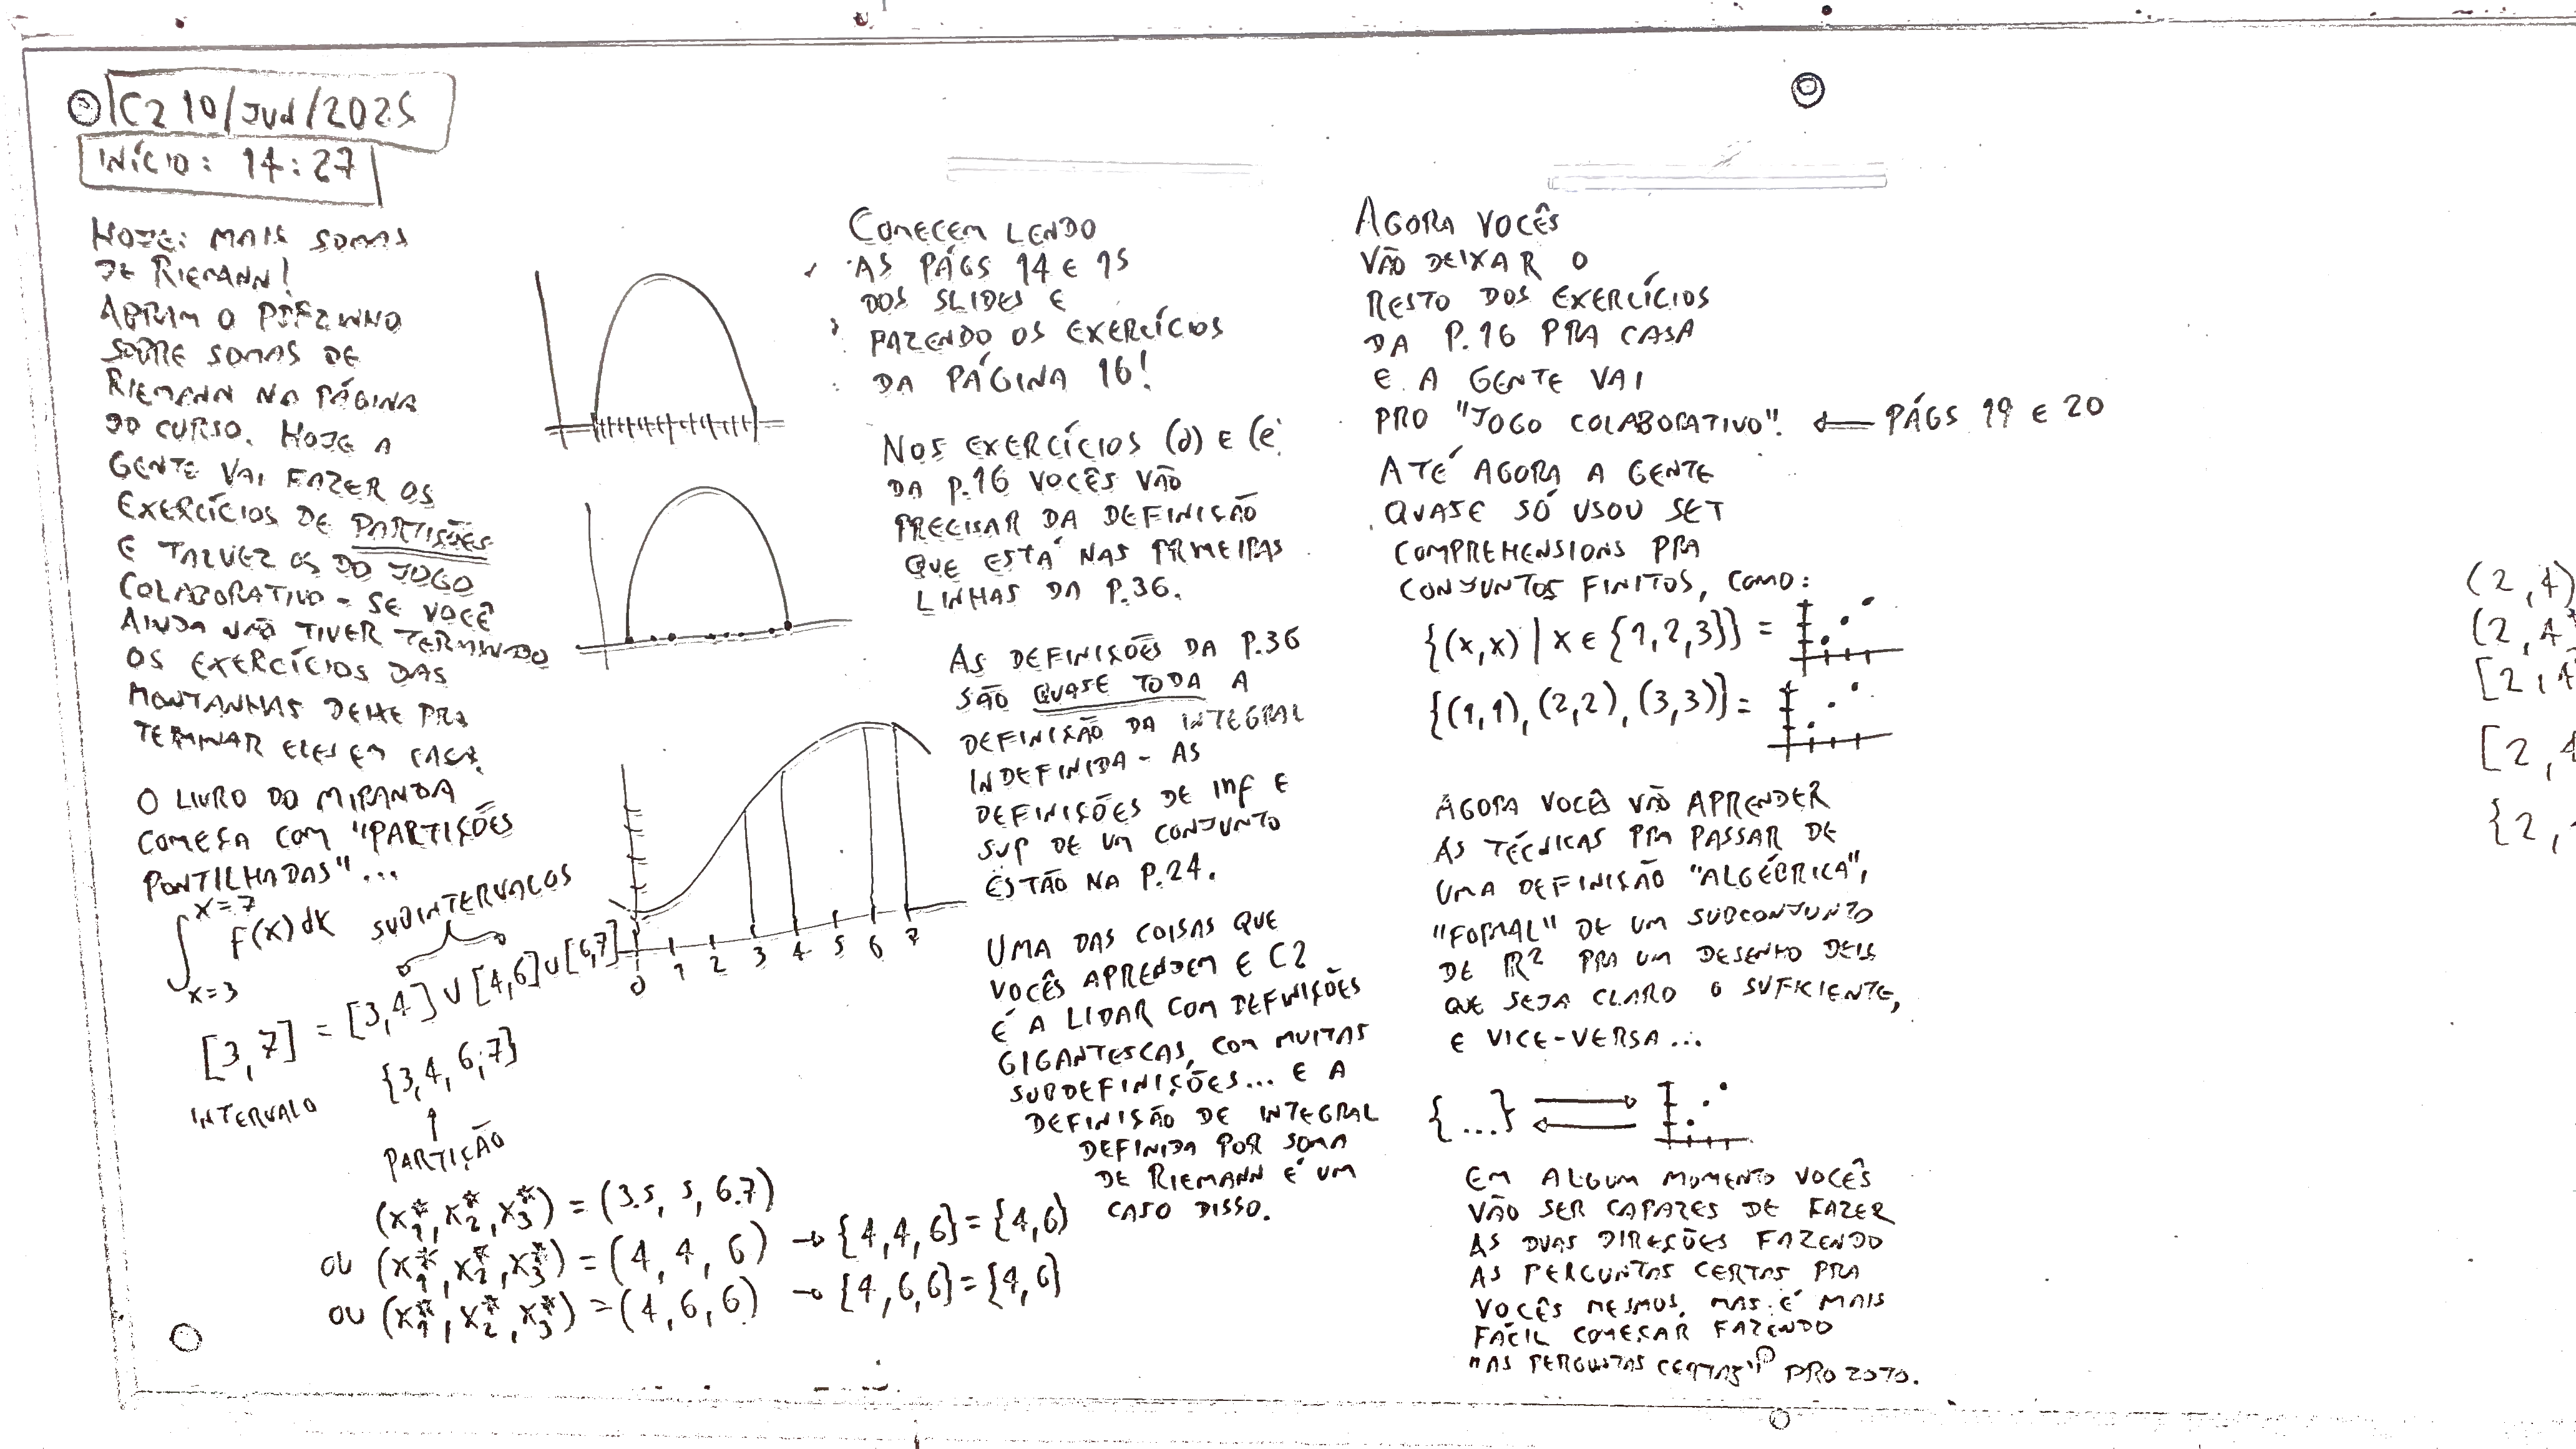 C2 10/JUN/2025
INÍCIO: 14:27
HOJE: MAIS SOMAS
DE RIEMANN!
ABRAM O PDFZINHO
SOBRE SOMAS DE
RIEMANN NA PÁGINA
DO CURSO. HOJE A
GENTE VAI FAZER OS
EXERCÍCIOS DE PARTIÇÕES
E TALVEZ OS DO JOGO
COLABORATIVO - SE VOCÊ
AINDA NÃO TIVER TERMINADO
OS EXERCÍCIOS DAS
MONTANHAS DEIXE PRA
TERMINAR ELES EM CASA.
O LIVRO DO MIRANDA
COMEÇA COM "PARTIÇÕES
PONTILHADAS"...
∫ x=3 x=7 f(x) dx
SUBINTERVALOS
[3,7] = [3,4] ∪ [4,6] ∪ [6,7]
INTERVALO
{3,4,6,7}
↑
PARTIÇÃO
(x₁*, x₂*, x₃*) = (3.5, 5, 6.7)
OU (x₁*, x₂*, x₃*) = (4, 4, 6) → {4,4,6} = {4,6}
OU (x₁*, x₂*, x₃*) = (4, 6, 6) → {4,6,6} = {4,6}
0 1 2 3 4 5 6 7
COMECEM LENDO
AS PÁGS 14 E 15
DOS SLIDES E
FAZENDO OS EXERCÍCIOS
DA PÁGINA 16!
NOS EXERCÍCIOS (d) E (e)
DA P.16 VOCÊS VÃO
PRECISAR DA DEFINIÇÃO
QUE ESTÁ NAS PRIMEIRAS
LINHAS DA P.36.
AS DEFINIÇÕES DA P.36
SÃO QUASE TODA A
DEFINIÇÃO DA INTEGRAL
INDEFINIDA - AS
DEFINIÇÕES DE INF E
SUP DE UM CONJUNTO
ESTÃO NA P.24.
UMA DAS COISAS QUE
VOCÊS APRENDEM E C2
É A LIDAR COM DEFINIÇÕES
GIGANTESCAS, COM MUITAS
SUBDEFINIÇÕES... E A
DEFINIÇÃO DE INTEGRAL
DEFINIDA POR SOMA
DE RIEMANN É UM
CASO DISSO.
AGORA VOCÊS
VÃO DEIXAR O
RESTO DOS EXERCÍCIOS
DA P.16 PRA CASA
E A GENTE VAI
PRO "JOGO COLABORATIVO". ← PÁGS 19 E 20
ATÉ AGORA A GENTE
QUASE SÓ USOU SET
COMPREHENSIONS PRA
CONJUNTOS FINITOS, COMO:
{(x,x) | x ∈ {1,2,3}} =
{(1,1), (2,2), (3,3)} =
AGORA VOCÊS VÃO APRENDER
AS TÉCNICAS PRA PASSAR DE
UMA DEFINIÇÃO "ALGÉBRICA",
"FORMAL" DE UM SUBCONJUNTO
DE ℝ² PRA UM DESENHO DELE
QUE SEJA CLARO O SUFICIENTE,
E VICE-VERSA...
{...}
EM ALGUM MOMENTO VOCÊS
VÃO SER CAPAZES DE FAZER
AS DUAS DIREÇÕES FAZENDO
AS PERGUNTAS CERTAS PRA
VOCÊS MESMOS, MAS É MAIS
FÁCIL COMEÇAR FAZENDO
"AS PERGUNTAS CERTAS" PRO
(2,4)
(2,4
[2,4
[2,4
{2,